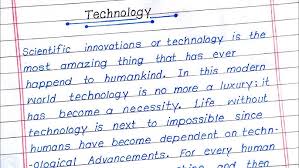 Technology
Scientific innovations or technology is the
most amazing thing that has ever
happend to humankind. In this modern
World technology is no more a luxury; it
has become a necessity. Life without
technology is next to impossible since
humans have become dependent on techn-
-ological Advancements. For every human
thing and then